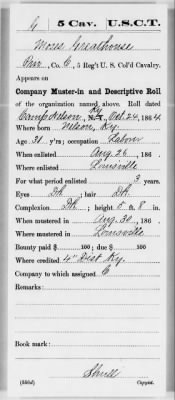 G 5 Cav. U.S.C.T.
Moses Greathouse
Pvt., Co. G, 5 Reg't U. S. Col'd Cavalry.
Appears on
Company Muster-in and Descriptive Roll
of the organization named above. Roll dated
Camp Nelson, Ky, Oct. 24, 1864.
Where born Nelson, Ky.
Age 31 y'rs; occupation Labor
When enlisted Aug. 26, 186 .
Where enlisted Louisville
For what period enlisted 3 years.
Eyes Dk ; hair Dk
Complexion Dk ; height 5 ft. 8 in.
When mustered in Aug. 30, 186 .
Where mustered in Louisville
Bounty paid $ 100; due $ 100
Where credited 4" Dist Ky.
Company to which assigned G
Remarks:
Book mark:
Shull
(356d) Copyist.